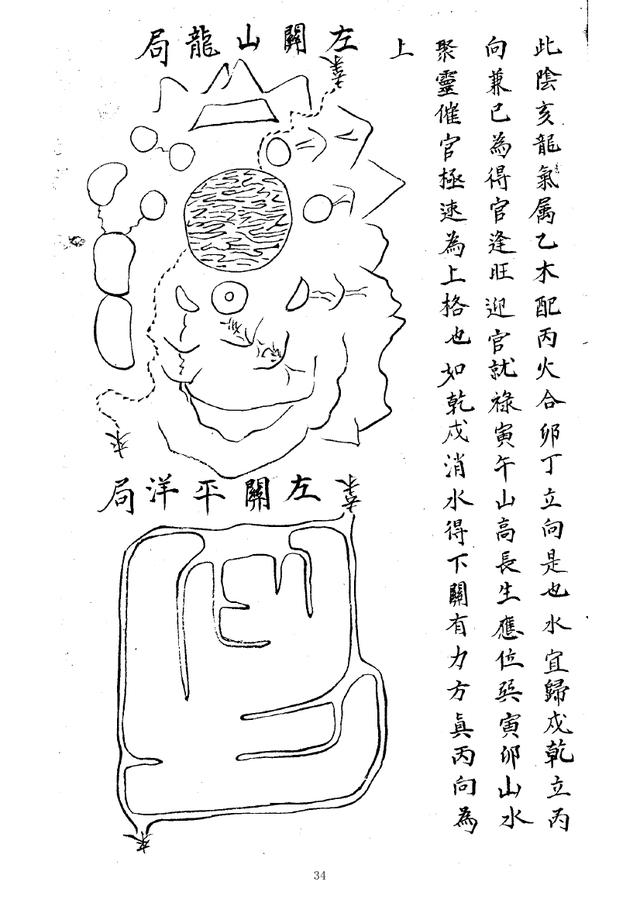 此陰亥龍氣属乙木配丙火合卯丁立向是也水宜歸戍乾立丙
向兼巳為得官逢旺迎官就祿寅午山高長生應位巽寅卯山水
聚靈催官極速為上格也如乾戍消水得下關有力方真丙向為
上
左關山龍局
來
來
左關平洋局
來
來
34